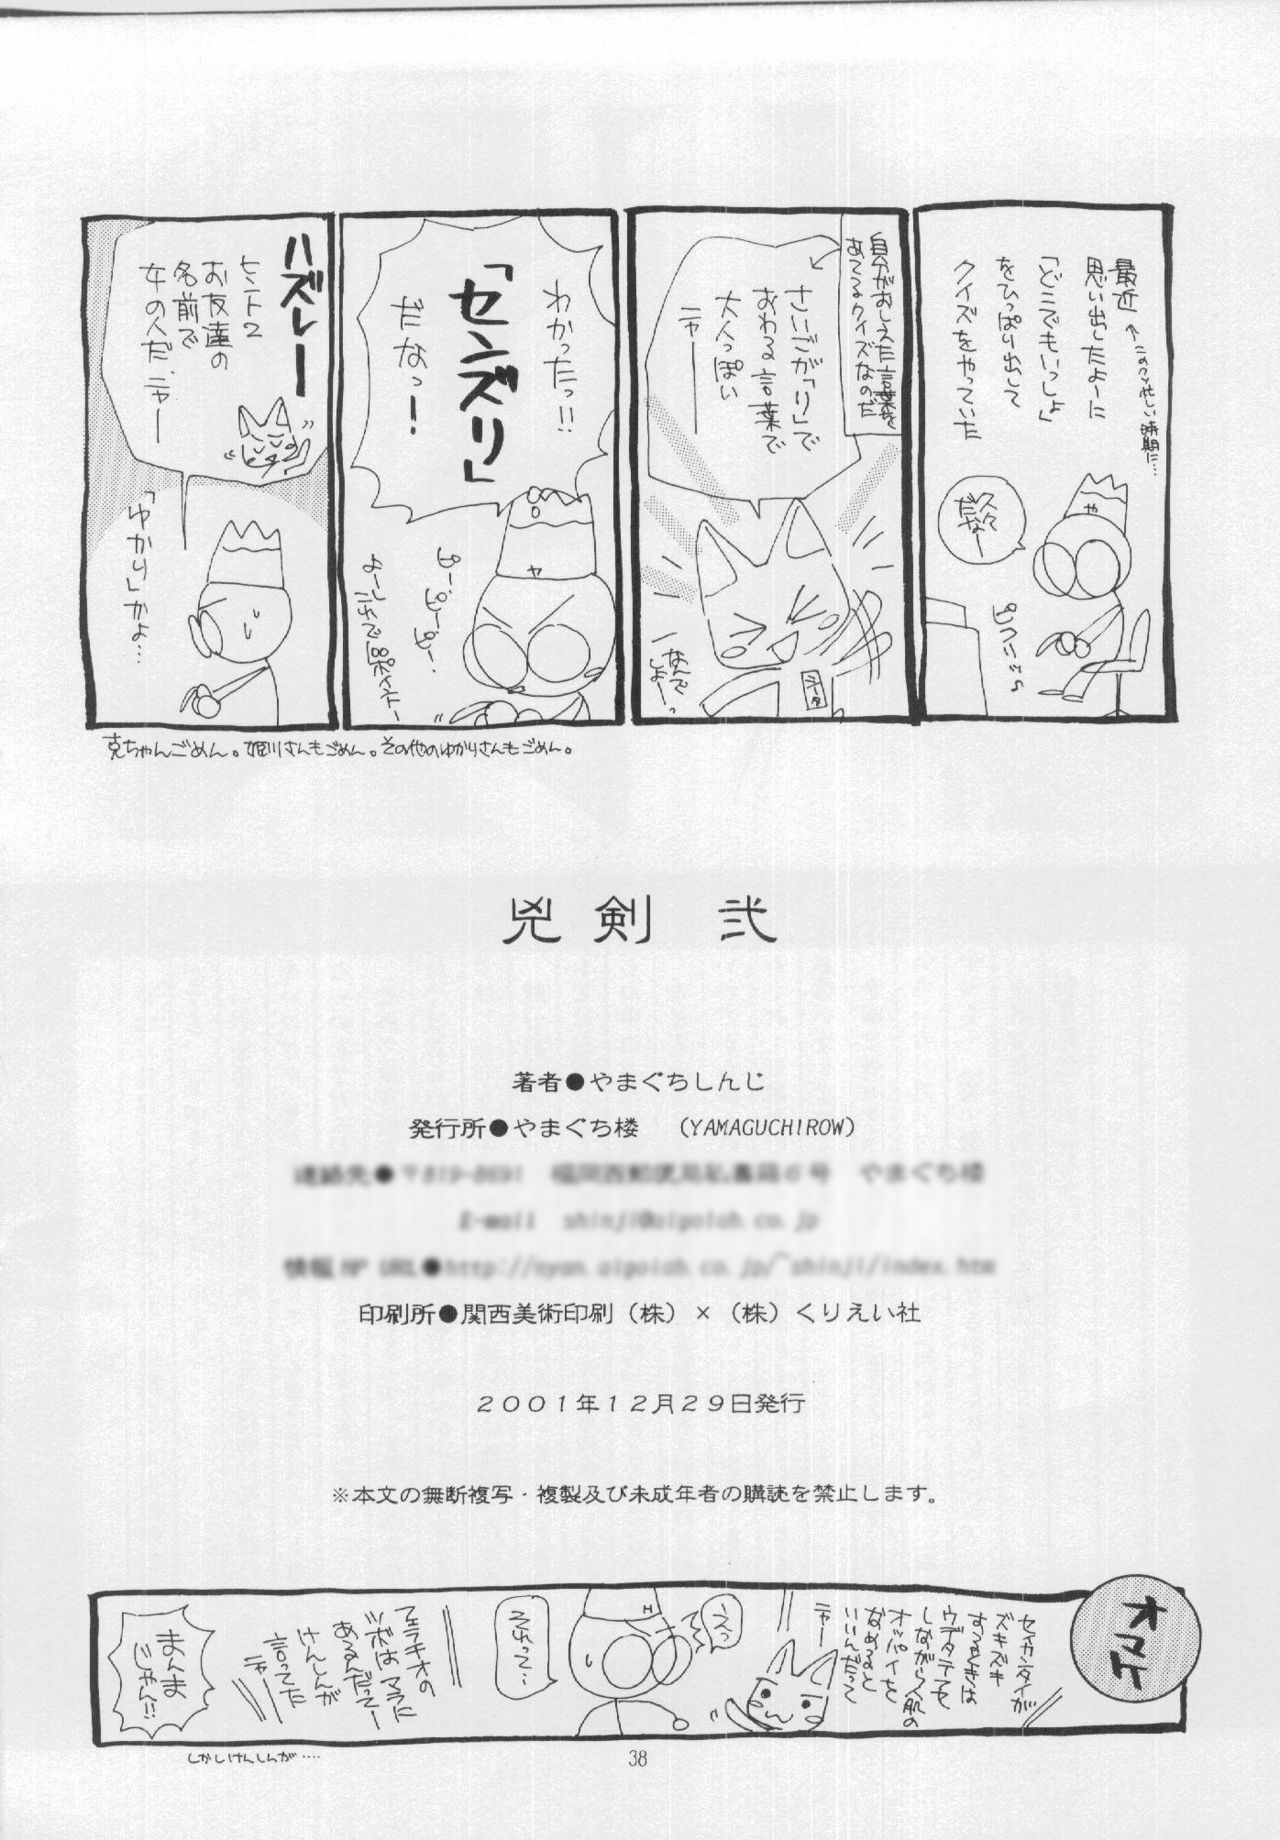 最近
思い出したよーに
「どこでもいっしょ」
をひっぱり出して
クイズをやっていた
←このクソ忙しい時期に…
久々
だなー
や
自分がおしえた言葉を
あてるクイズなのだ
さいごが「リ」で
おわる言葉で
大人っぽい
ニャー
なんで
しょー
わかったっ!!
「センズリ」
だなっ!
ヤ
ハズレー
ヒント2
お友達の
名前で
女の人だ、ニャー
「ゆかり」かよ…
克ちゃんごめん。姫川さんもごめん。その他のゆかりさんもごめん。
兇剣 弐
著者●やまぐちしんじ
発行所●やまぐち楼 (YAMAGUCHIROW)
印刷所●関西美術印刷(株)×(株)くりえい社
2001年12月29日発行
※本文の無断複写・複製及び未成年者の購読を禁止します。
オマケ
セイカンタイが
ズキズキ
ウデタテを
しながら人肌の
オッパイを
なめると
いいんだって
ニャー
えっ
それって…
H
フェラチオの
ツボはマラに
あるんだってー
けんしんが
言ってた
ニャー
まんま
じゃん!!
しかしけんしんが…
38